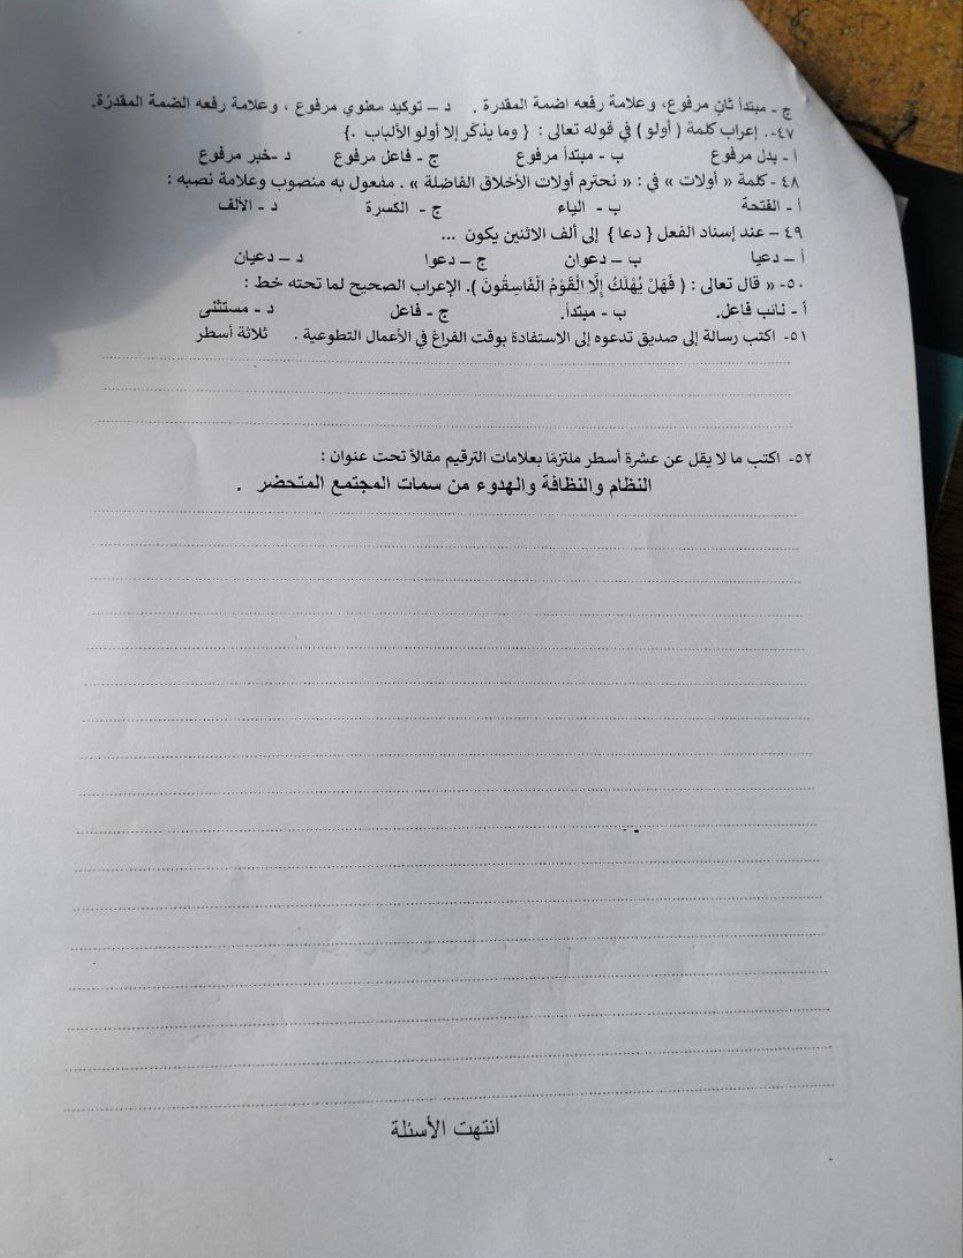 ج - مبتدأ ثانٍ مرفوع، وعلامة رفعه اضمة المقدرة . د – توكيد معنوي مرفوع ، وعلامة رفعه الضمة المقدرة.
٤٧-. إعراب كلمة ( أولو ) في قوله تعالى : { وما يذكّر إلا أولو الألباب .}
أ - بدل مرفوع ب - مبتدأ مرفوع ج - فاعل مرفوع د -خبر مرفوع
٤٨ - كلمة « أولات » في : « نحترم أولات الأخلاق الفاضلة » . مفعول به منصوب وعلامة نصبه :
أ - الفتحة ب - الياء ج - الكسرة د - الألف
٤٩ – عند إسناد الفعل { دعا } إلى ألف الاثنين يكون ...
أ – دعيا ب – دعوان ج – دعوا د – دعيان
٥٠- « قال تعالى : ( فَهَلْ يُهْلَكُ إِلَّا الْقَوْمُ الْفَاسِقُونَ ). الإعراب الصحيح لما تحته خط :
أ - نائب فاعل. ب - مبتدأ. ج - فاعل د - مستثنى
٥١- اكتب رسالة إلى صديق تدعوه إلى الاستفادة بوقت الفراغ في الأعمال التطوعية . ثلاثة أسطر
٥٢- اكتب ما لا يقل عن عشرة أسطر ملتزمًا بعلامات الترقيم مقالاً تحت عنوان :
النظام والنظافة والهدوء من سمات المجتمع المتحضر .
انتهت الأسئلة